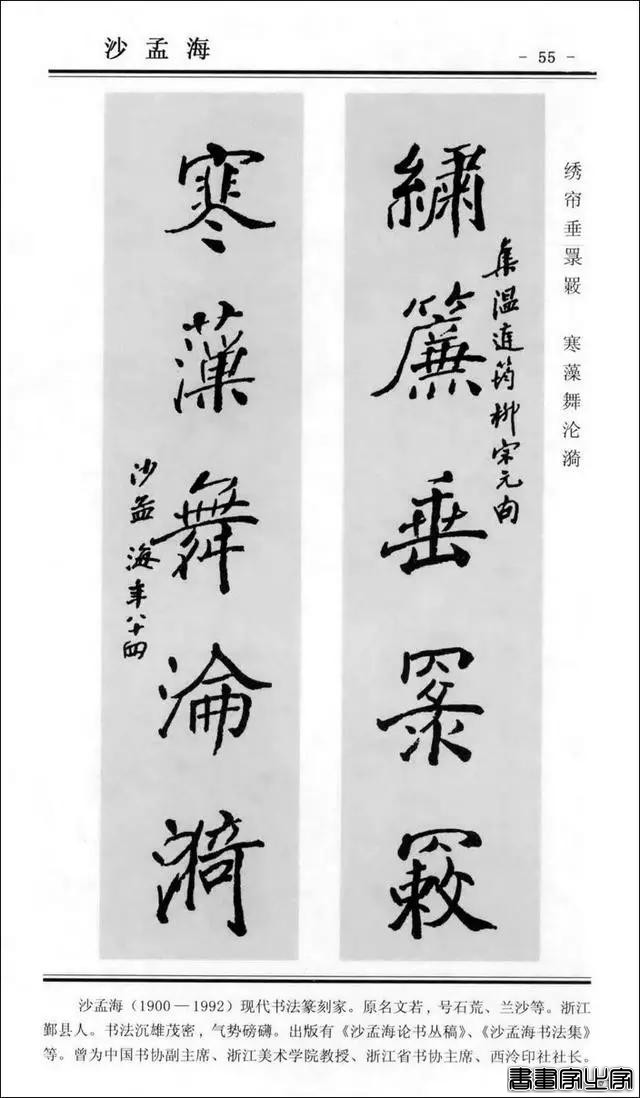 沙孟海
- 55 -
绣帘垂罬䍁 寒藻舞沦漪
繡簾垂
集温连筠柳宗元句
寒藻舞淪漪
沙孟海年八十四
沙孟海（1900—1992）现代书法篆刻家。原名文若，号石荒、兰沙等。浙江
鄞县人。书法沉雄茂密，气势磅礴。出版有《沙孟海论书丛稿》、《沙孟海书法集》
等。曾为中国书协副主席、浙江美术学院教授、浙江省书协主席、西泠印社社长。
書畫家之家